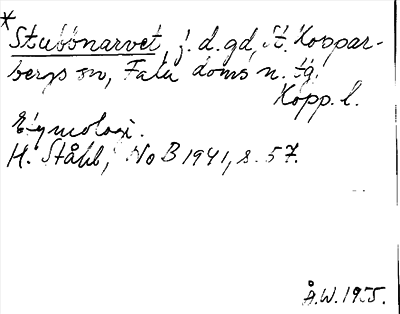 * Stubbnarvet, j. d. gd, St. Koppar-
bergs sn, Falu doms n. tg.
Kopp. l.
Etymologi.
H. Ståhl, NoB 1941, s. 57.
Å.W. 1955.